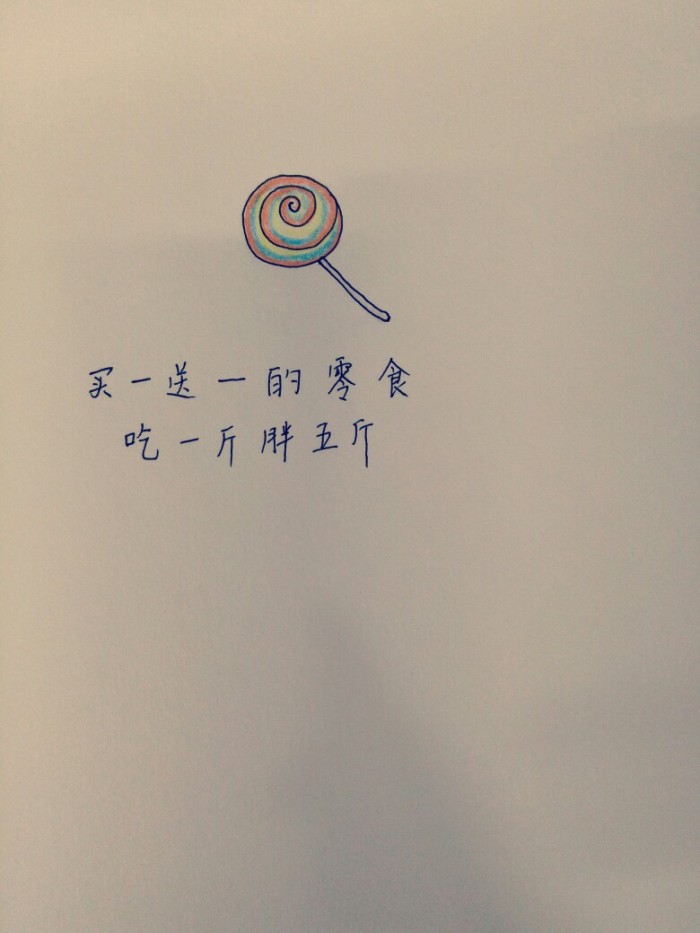 买一送一的零食
吃一斤胖五斤